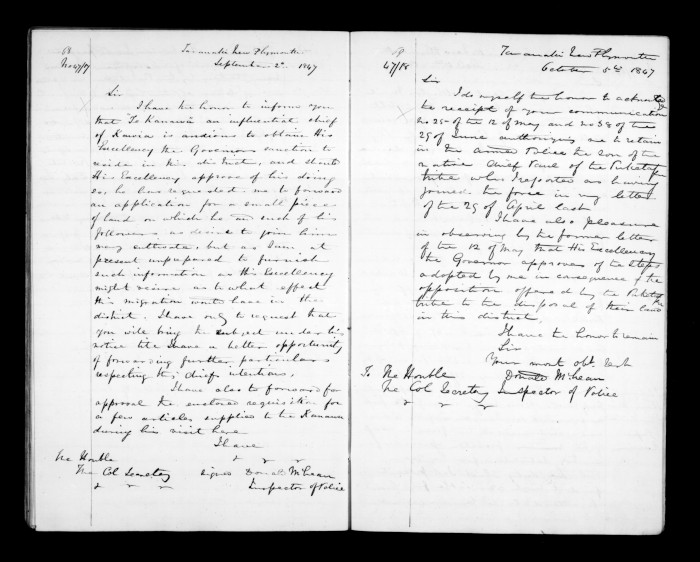 P
No 47/17
Taranaki New Plymouth
September 2d 1847
Sir
I have the honor to inform you
that Te Kanawa an influential chief
of Kawia is anxious to obtain His
Excellency the Governors sanction to
reside in this district, and should
His Excellency approve of his doing
so, he has requested me to forward
an application for a small piece
of land on which he and such of his
followers as desire to join him
may cultivate, but as I am at
present unprepared to furnish
such information as His Excellency
might require as to what effect
his migration would have in this
district. I have only to request that
you will bring the subject under his
notice till I have a better opportunity
of forwarding further particulars
respecting this chiefs intentions.
I have also to forward for
approval the enclosed requisition for
a few articles supplied to Te Kanawa
during his visit here
I have
The Honble
The Col Secretary
signed Donald McLean
Inspector of Police
P
47/18
Taranaki New Plymouth
October 5th 1847
Sir
I do myself the honor to acknowledge
the receipt of your communication
no 25 of the 12 of May and no 38 of the
29 of June authorizing me to retain
in the Armed Police the son of the
native Chief Paul of the Puketapu
tribe who I reported as having
joined the force in my letter
of the 29 of April last
I have also pleasure
in observing by the former letter
of the 12 of May that His Excellency
the Governor approves of the steps
adopted by me in consequence of the
opposition offered by the Puketapu
tribe to the disposal of their land
in this district.
I have the honor to remain
Sir
Your most obt Servt
To The Honble
Donald McLean
The Col Secretary
Inspector of Police